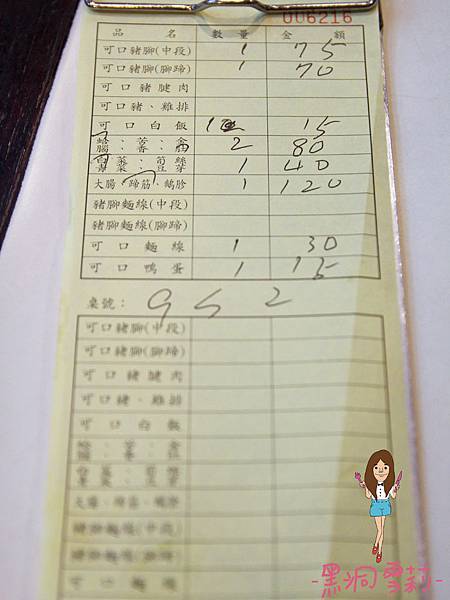 006216
品 名 數量 金 額
可口豬腳(中段) 1 75
可口豬腳(腳蹄) 1 70
可口豬腱肉
可口豬、雞排
可口白飯 1 15
2 80
白菜、筍絲
青菜、豆芽 1 40
大腸、蹄筋、鴨胗 1 120
豬腳麵線(中段)
豬腳麵線(腳蹄)
可口麵線 1 30
可口鴨蛋 1 15
桌號:
可口豬腳(中段)
可口豬腳(腳蹄)
可口豬腱肉
可口豬、雞排
可口白飯
大腸、蹄筋、鴨胗
豬腳麵線(中段)
豬腳麵線(腳蹄)
可口麵線
-黑洞雪莉-